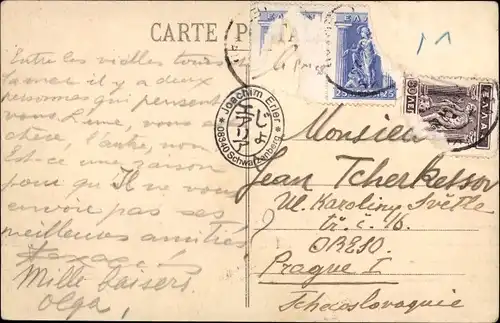 CARTE POSTALE
Entre les vieilles tours
il y a deux
personnes qui pensent
vous. L'une, vous a
l'autre, non
Est-ce une raison
pour que Il ne vous
envoie pas ses
meilleures amitiés
Mille baisers
Olga,
Joachim Erler
08340 Schwarzenberg
ΕΛΛΑΣ
Monsieur
Jean Tcherkessov
Ul. Karoliny Světlé
tř. č. 16.
Prague I
Tchecoslovaquie